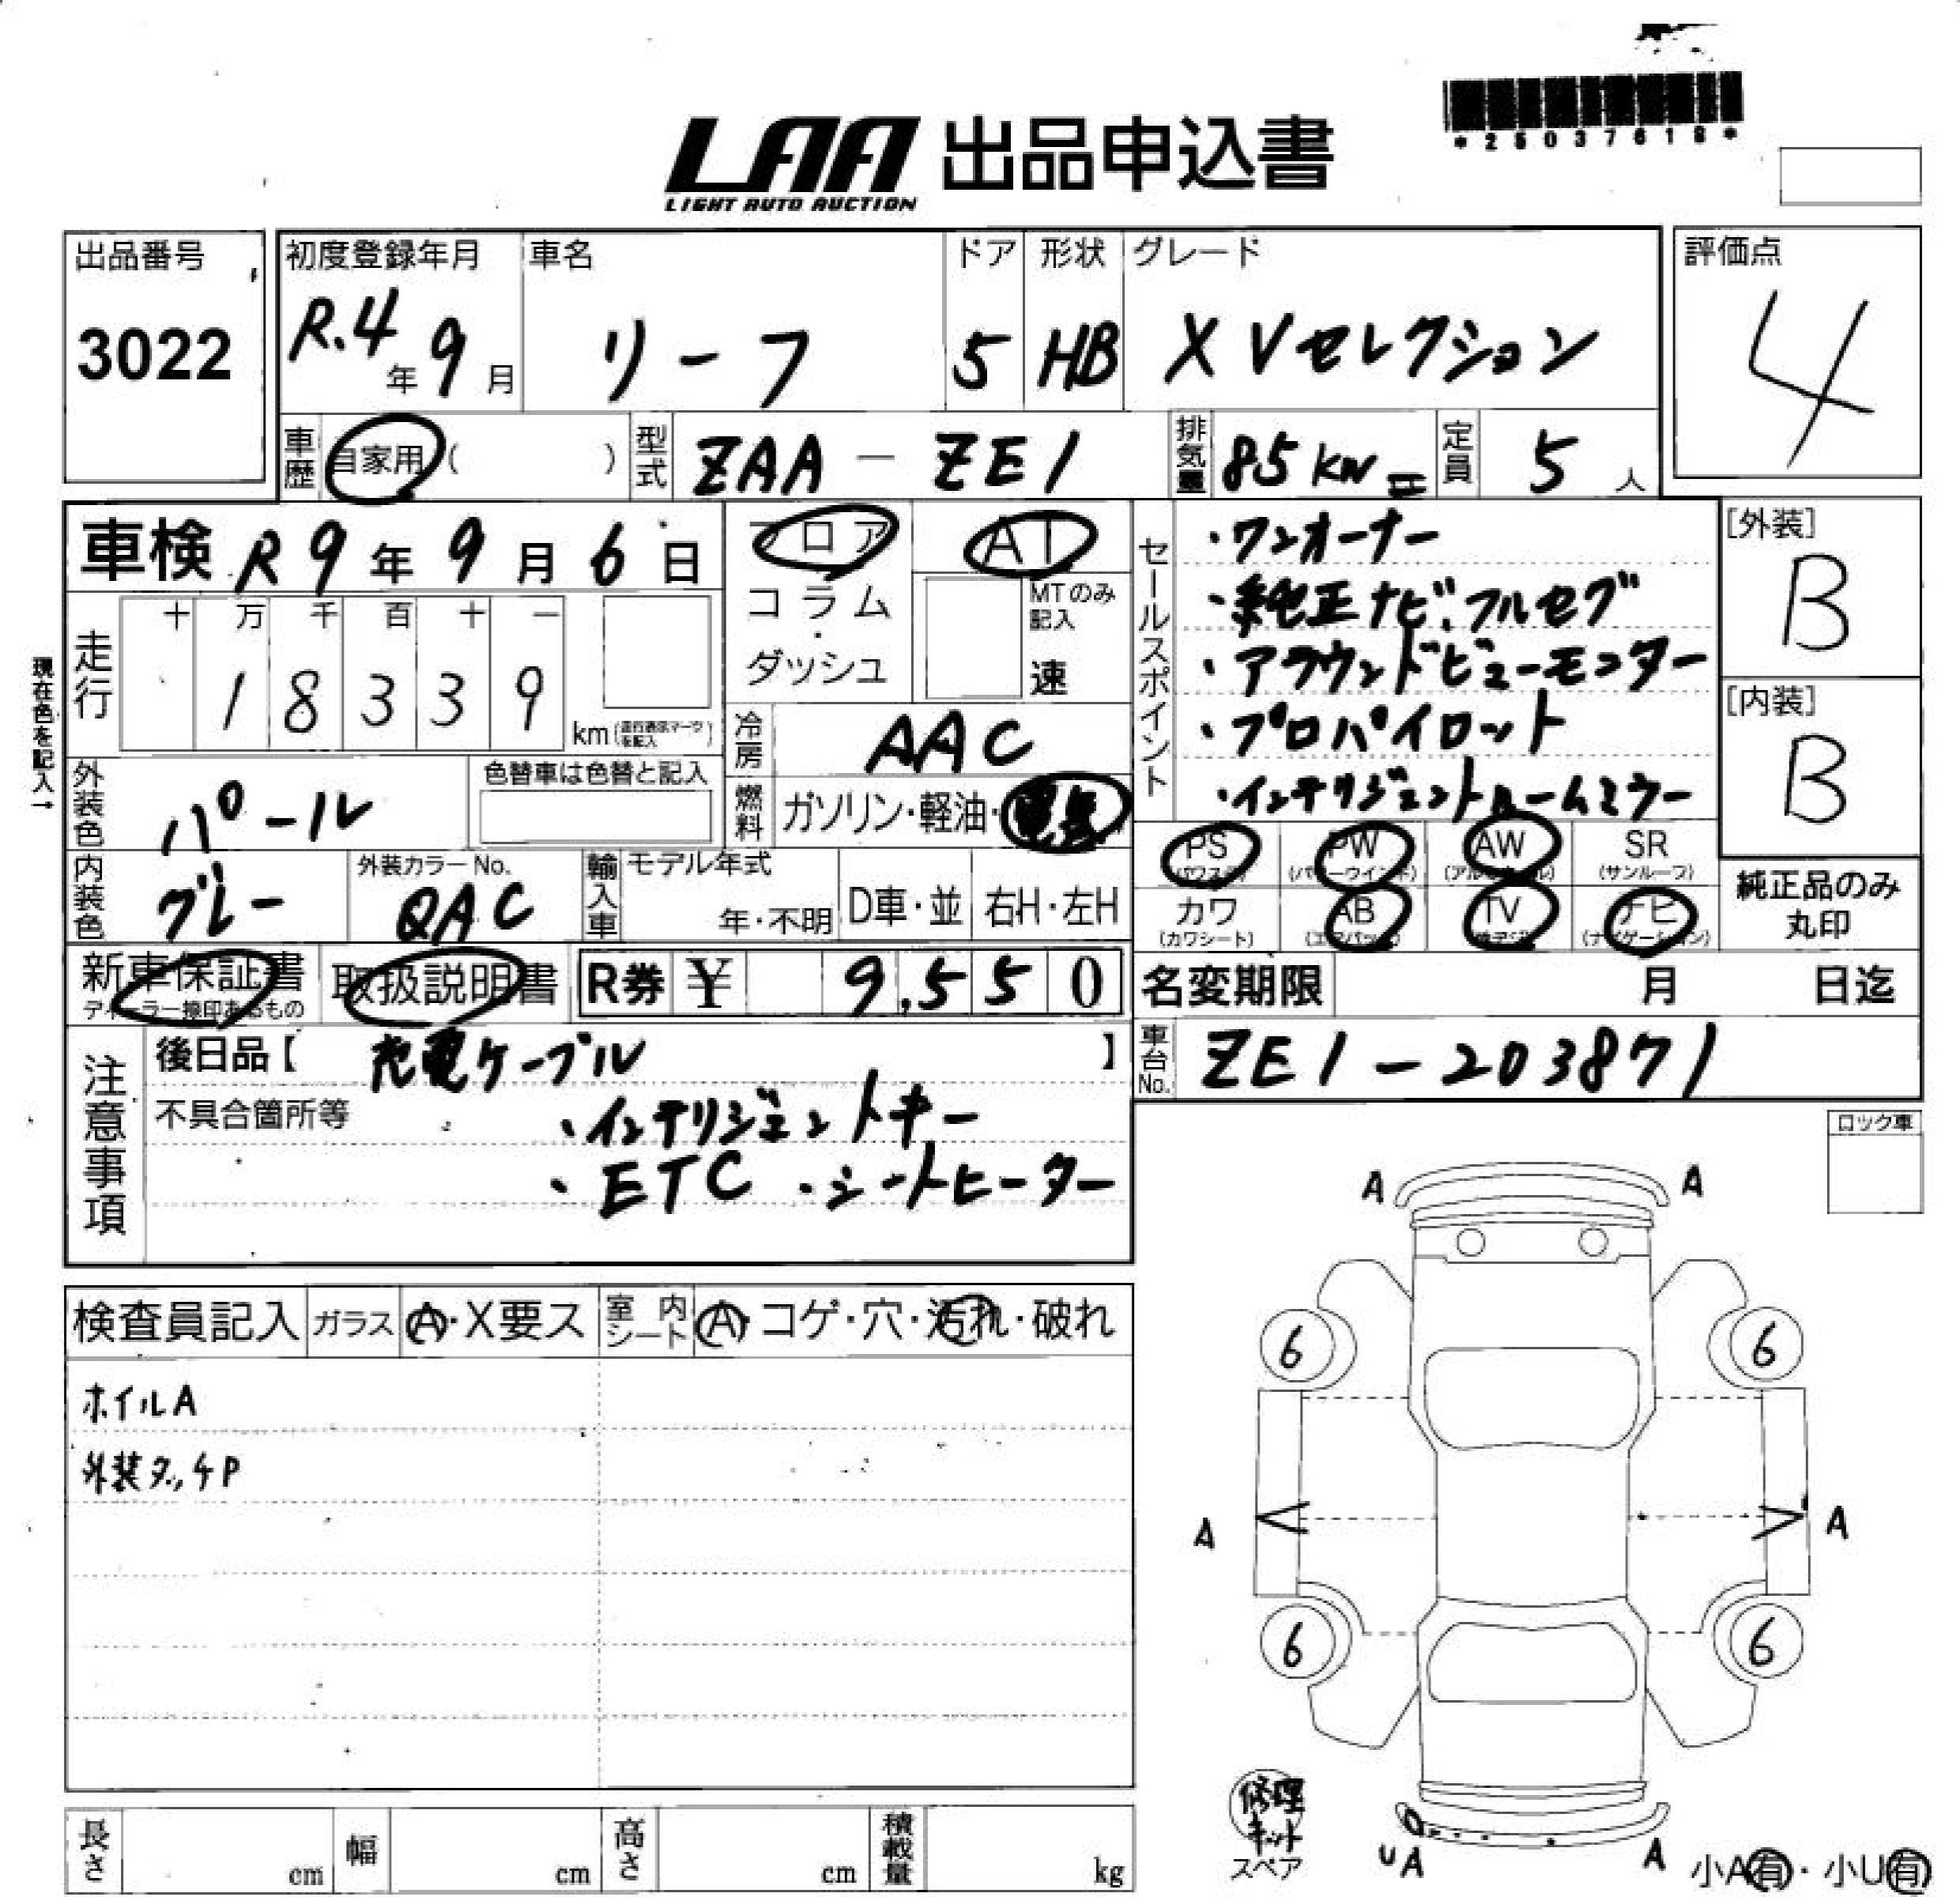 *25037618*
LAA 出品申込書
LIGHT AUTO AUCTION
出品番号
3022
初度登録年月
R.4年9月
車名
リーフ
ドア
5
形状
HB
グレード
X Vセレクション
評価点
4
車歴
自家用( )
型式
ZAA-ZE1
排気量
85KW
定員
5人
車検 R9年9月6日
フロア
コラム
・
ダッシュ
AT
MTのみ記入
速
セールスポイント
・ワンオーナー
・純正ナビ、フルセグ
・アラウンドビューモニター
・プロパイロット
・インテリジェントルームミラー
[外装]
B
[内装]
B
現在色を記入→
走行
十 万 千 百 十 一
1 8 3 3 9
km(走行表示マークを記入)
冷房
AAC
外装色
パール
色替車は色替と記入
燃料
ガソリン・軽油・電気
内装色
グレー
外装カラーNo.
QAC
輸入車
モデル年式
年・不明
D車・並
右H・左H
PS
(パワステ)
PW
(パワーウインド)
AW
(アルミホイル)
SR
(サンルーフ)
カワ
(カワシート)
AB
(エアバック)
TV
(テレビ)
ナビ
(ナビゲーション)
純正品のみ
丸印
新車保証書
ディーラー捺印あるもの
取扱説明書
R券 ¥ 9,550
名変期限 月 日迄
注意事項
後日品【 充電ケーブル 】
車台No.
ZE1-203871
不具合箇所等
・インテリジェントキー
・ETC ・シートヒーター
ロック車
A A
検査員記入
ガラス
A・X要ス
室内シート
A・コゲ・穴・汚れ・破れ
6 6
ホイルA
外装タッチP
A A
6 6
修理
キット
スペア
UA
A
小A有・小U有
長さ cm
幅 cm
高さ cm
積載量 kg